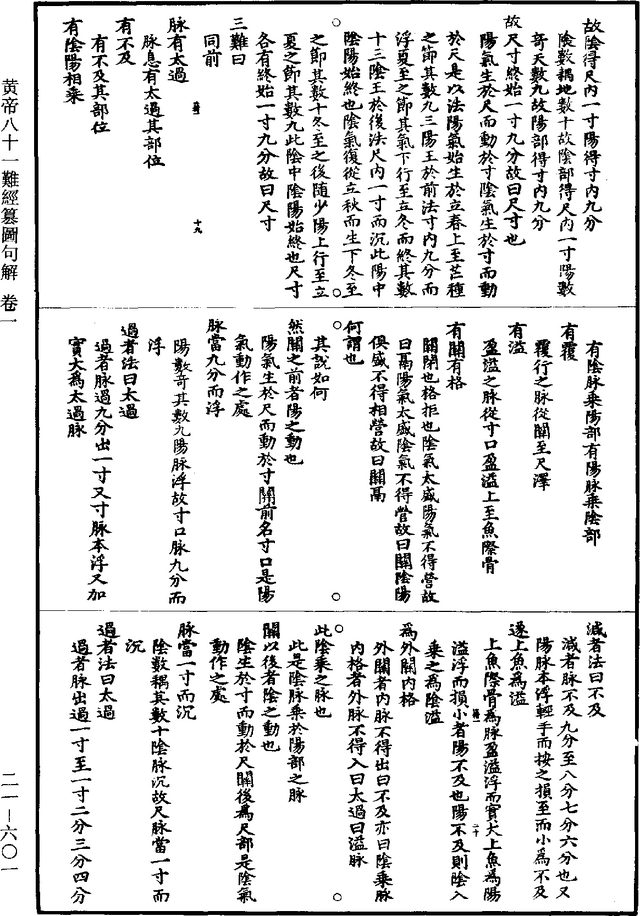 黃帝八十一難經纂圖句解 卷一
二一—六〇一
故陰得尺內一寸陽得寸內九分
陰數耦地數十故陰部得尺內一寸陽數
奇天數九故陽部得寸內九分
故尺寸終始一寸九分故曰尺寸也
陽氣生於尺而動於寸陰氣生於寸而動
於尺是以法陽氣始生於立春上至芒種
之節其數九三陽王於前法寸內九分而
浮夏至之節其氣下行至立冬而終其數
十三陰王於後法尺內一寸而沉此陽中
陰陽始終也陰氣復從立秋而生下冬至
之節其數十冬至之後隨少陽上行至立
夏之節其數九此陰中陰陽始終也尺寸
各有終始一寸九分故曰尺寸
三難曰
同前
十九
脉有太過
脉息有太過其部位
有不及
有不及其部位
有陰陽相乘
有陰脉乘陽部有陽脉乘陰部
有覆
覆行之脉從關至尺澤
有溢
盈溢之脉從寸口盈溢上至魚際骨
有關有格
關閉也格拒也陰氣太盛陽氣不得營故
曰鬲陽氣太盛陰氣不得營故曰關陰陽
俱盛不得相營故曰關鬲
何謂也
其說如何
然關之前者陽之動也
陽氣生於尺而動於寸關前名寸口是陽
氣動作之處
脉當九分而浮
陽數奇其數九陽脉浮故寸口脉九分而
浮
過者法曰太過
過者脉過九分出一寸又寸脉本浮又加
實大為太過脉
減者法曰不及
減者脉不及九分至八分七分六分也又
陽脉本浮輕手而按之損至而小為不及
遂上魚為溢
上魚際骨為脉盈溢浮而實大上魚為陽
溢浮而損小者陽不及也陽不及則陰入
乘之為陰溢
二十
為外關內格
外關者內脉不得出曰不及亦曰陰乘脉
內格者外脉不得入曰太過曰溢脉
此陰乘之脉也
此是陰脉乘於陽部之脉
關以後者陰之動也
陰生於寸而動於尺關後為尺部是陰氣
動作之處
脉當一寸而沉
陰數耦其數十陰脉沉故尺脉當一寸而
沉
過者法曰太過
過者脉出過一寸至一寸二分三分四分